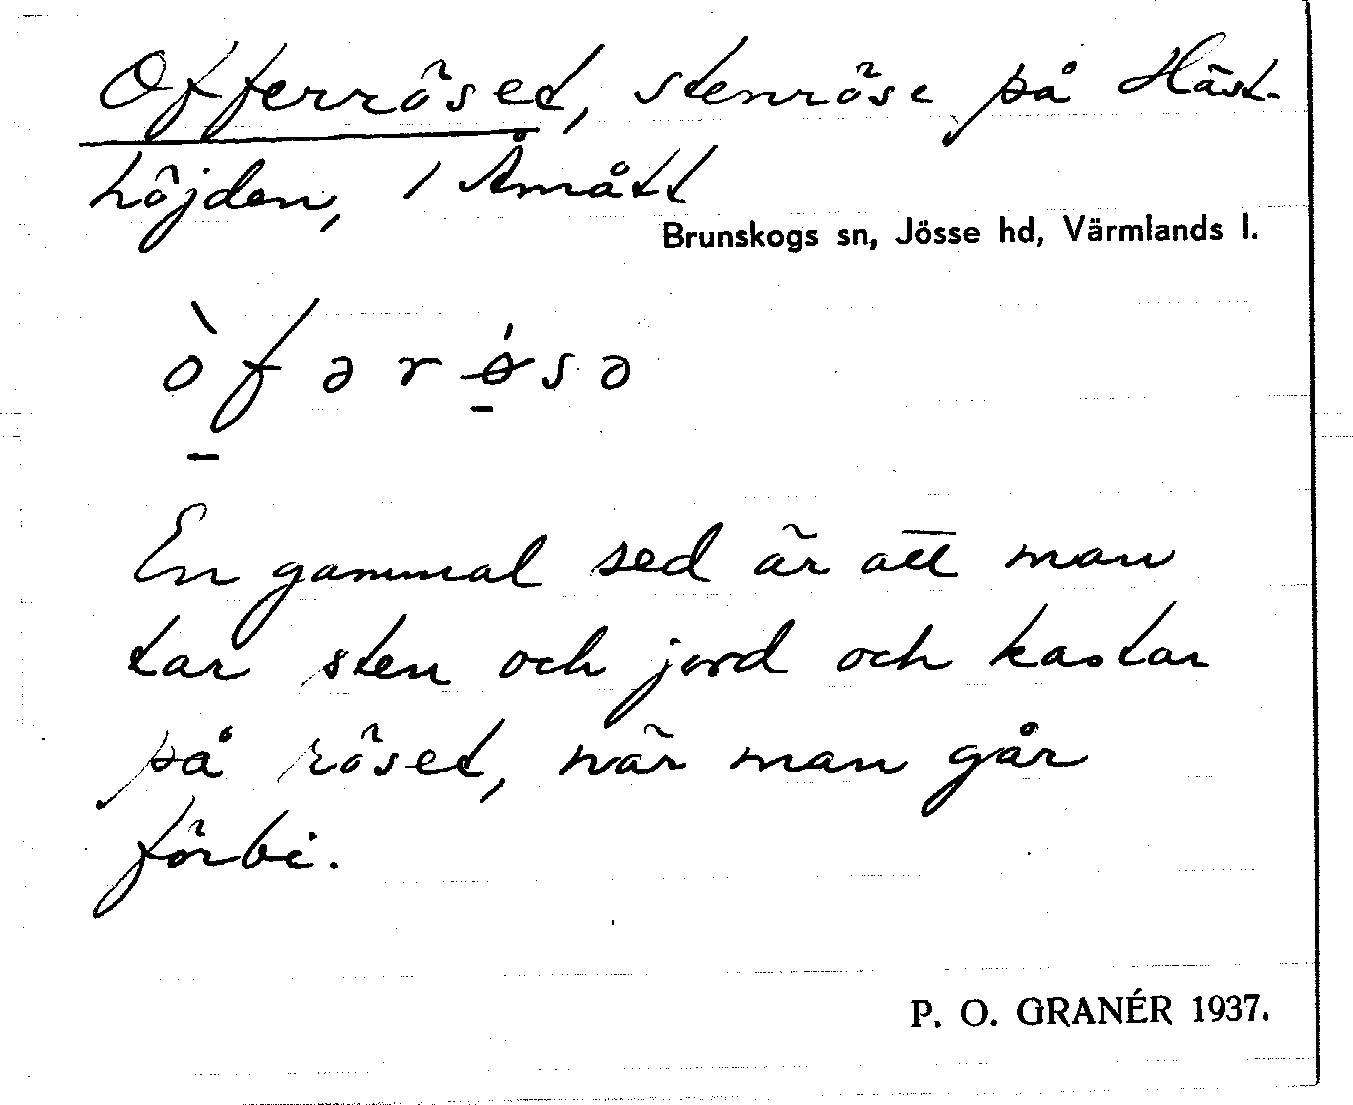 Offerröset, stenröse på Häst-
höjden, / Åmått
Brunskogs sn, Jösse hd, Värmlands l.
òfərǿsə
En gammal sed är att man
tar sten och jord och kastar
på röset, när man går
förbi.
P. O. GRANÉR 1937.